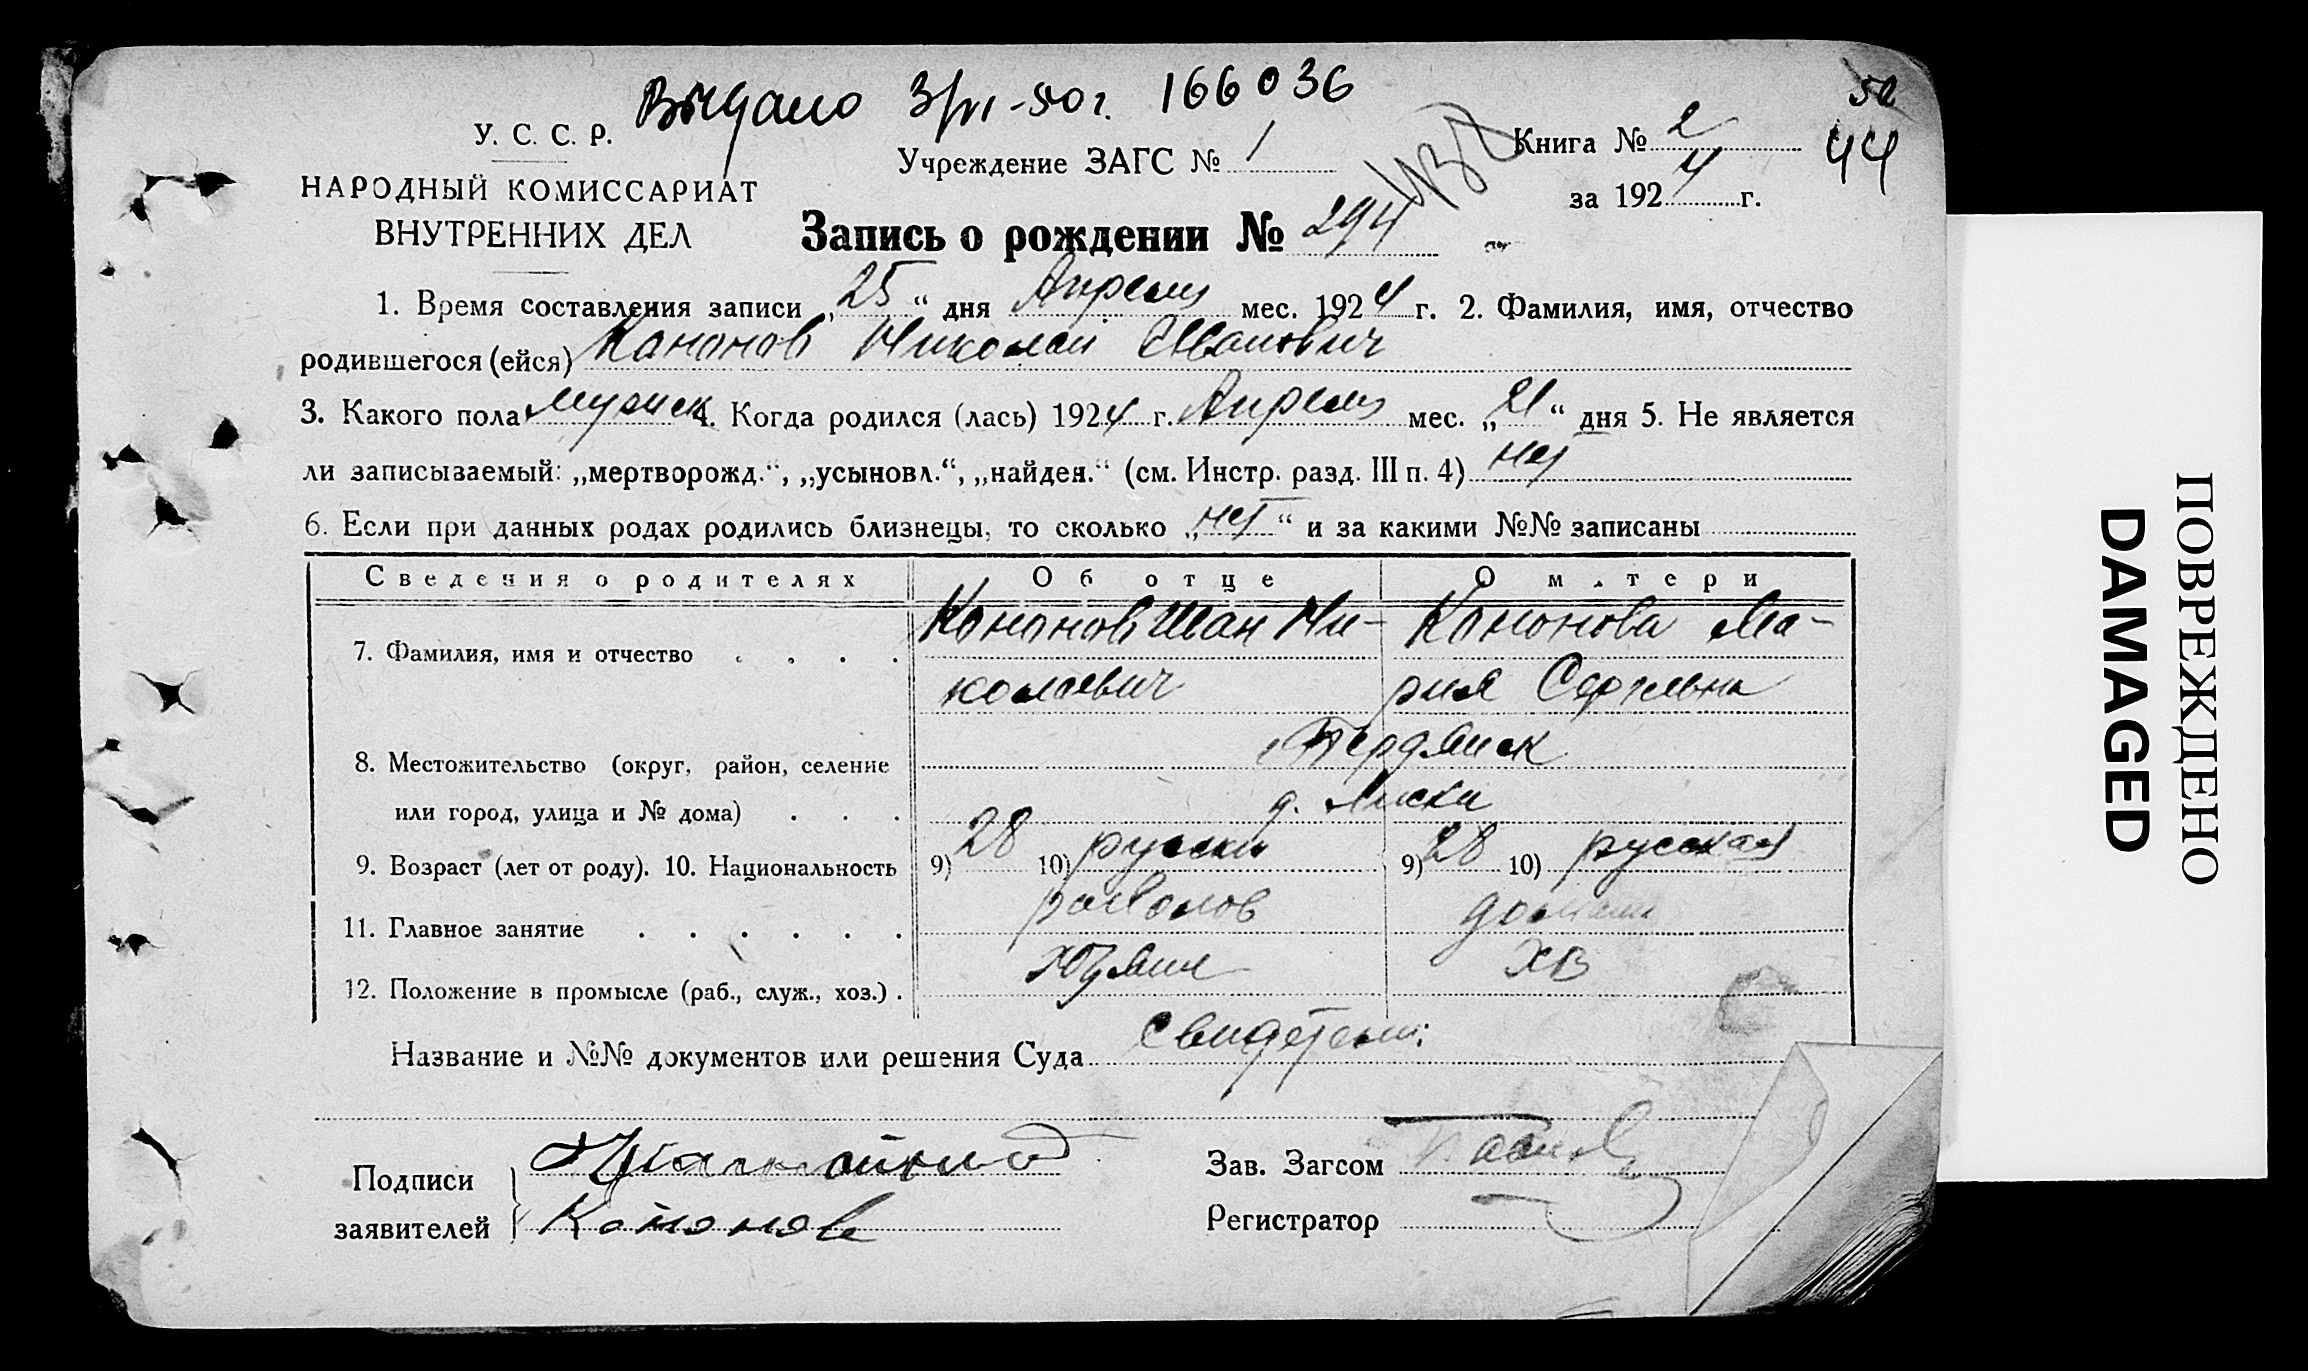 Выдано 3/VI-50г. 166036
50
У. С. С. Р.
Учреждение ЗАГС № 1
Книга № 2
44
НАРОДНЫЙ КОМИССАРИАТ
за 1924 г.
ВНУТРЕННИХ ДЕЛ
Запись о рождении № 294
1. Время составления записи „25“ дня Апреля мес. 1924 г. 2. Фамилия, имя, отчество
родившегося (ейся) Кононов Николай Иванович
3. Какого пола мужск 4. Когда родился (лась) 1924 г. Апреля мес. „21“ дня 5. Не является
ли записываемый: „мертворожд.“, „усыновл.“, „найден.“ (см. Инстр. разд. III п. 4) нет
6. Если при данных родах родились близнецы, то сколько „нет“ и за какими №№ записаны
Сведения о родителях Об отце О матери
7. Фамилия, имя и отчество Кононов Иван Ни- Кононова Ма-
колаевич рия Сергеевна
8. Местожительство (округ, район, селение Бердянск
или город, улица и № дома) д. Лиски
9. Возраст (лет от роду). 10. Национальность 9) 28 10) русский 9) 28 10) русская
11. Главное занятие рыболов домашн
12. Положение в промысле (раб., служ., хоз.) Хозяин ХВ
Название и №№ документов или решения Суда свидетели:
Подписи
заявителей Кононов
Зав. Загсом
Регистратор
ПОВРЕЖДЕНО
DAMAGED